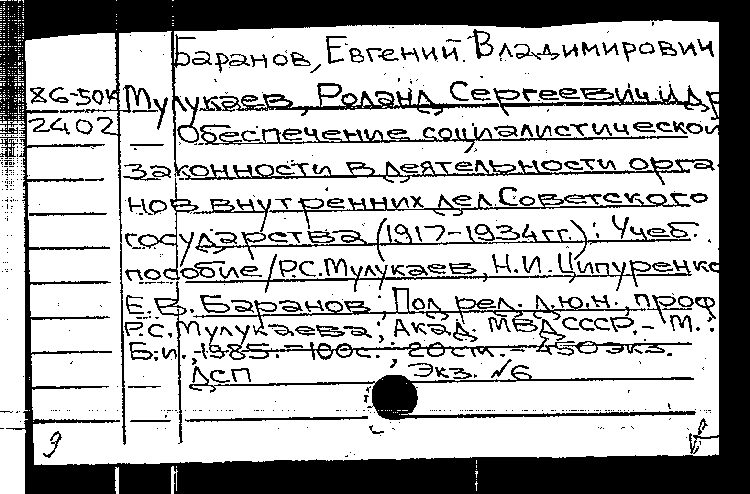 Баранов, Евгений Владимирович
86-50к Мулукаев, Роланд Сергеевич и др
2402 Обеспечение социалистической
законности в деятельности орга-
нов внутренних дел Советского
государства (1917-1934 гг.): Учеб.
пособие / Р.С. Мулукаев, Н.И. Ципуренко
Е.В. Баранов; Под ред. д.ю.н., проф
Р.С. Мулукаева; Акад. МВД СССР. - М.:
Б.и., 1985. - 100с.; 20см. - 450 экз.
ДСП Экз. №6
g